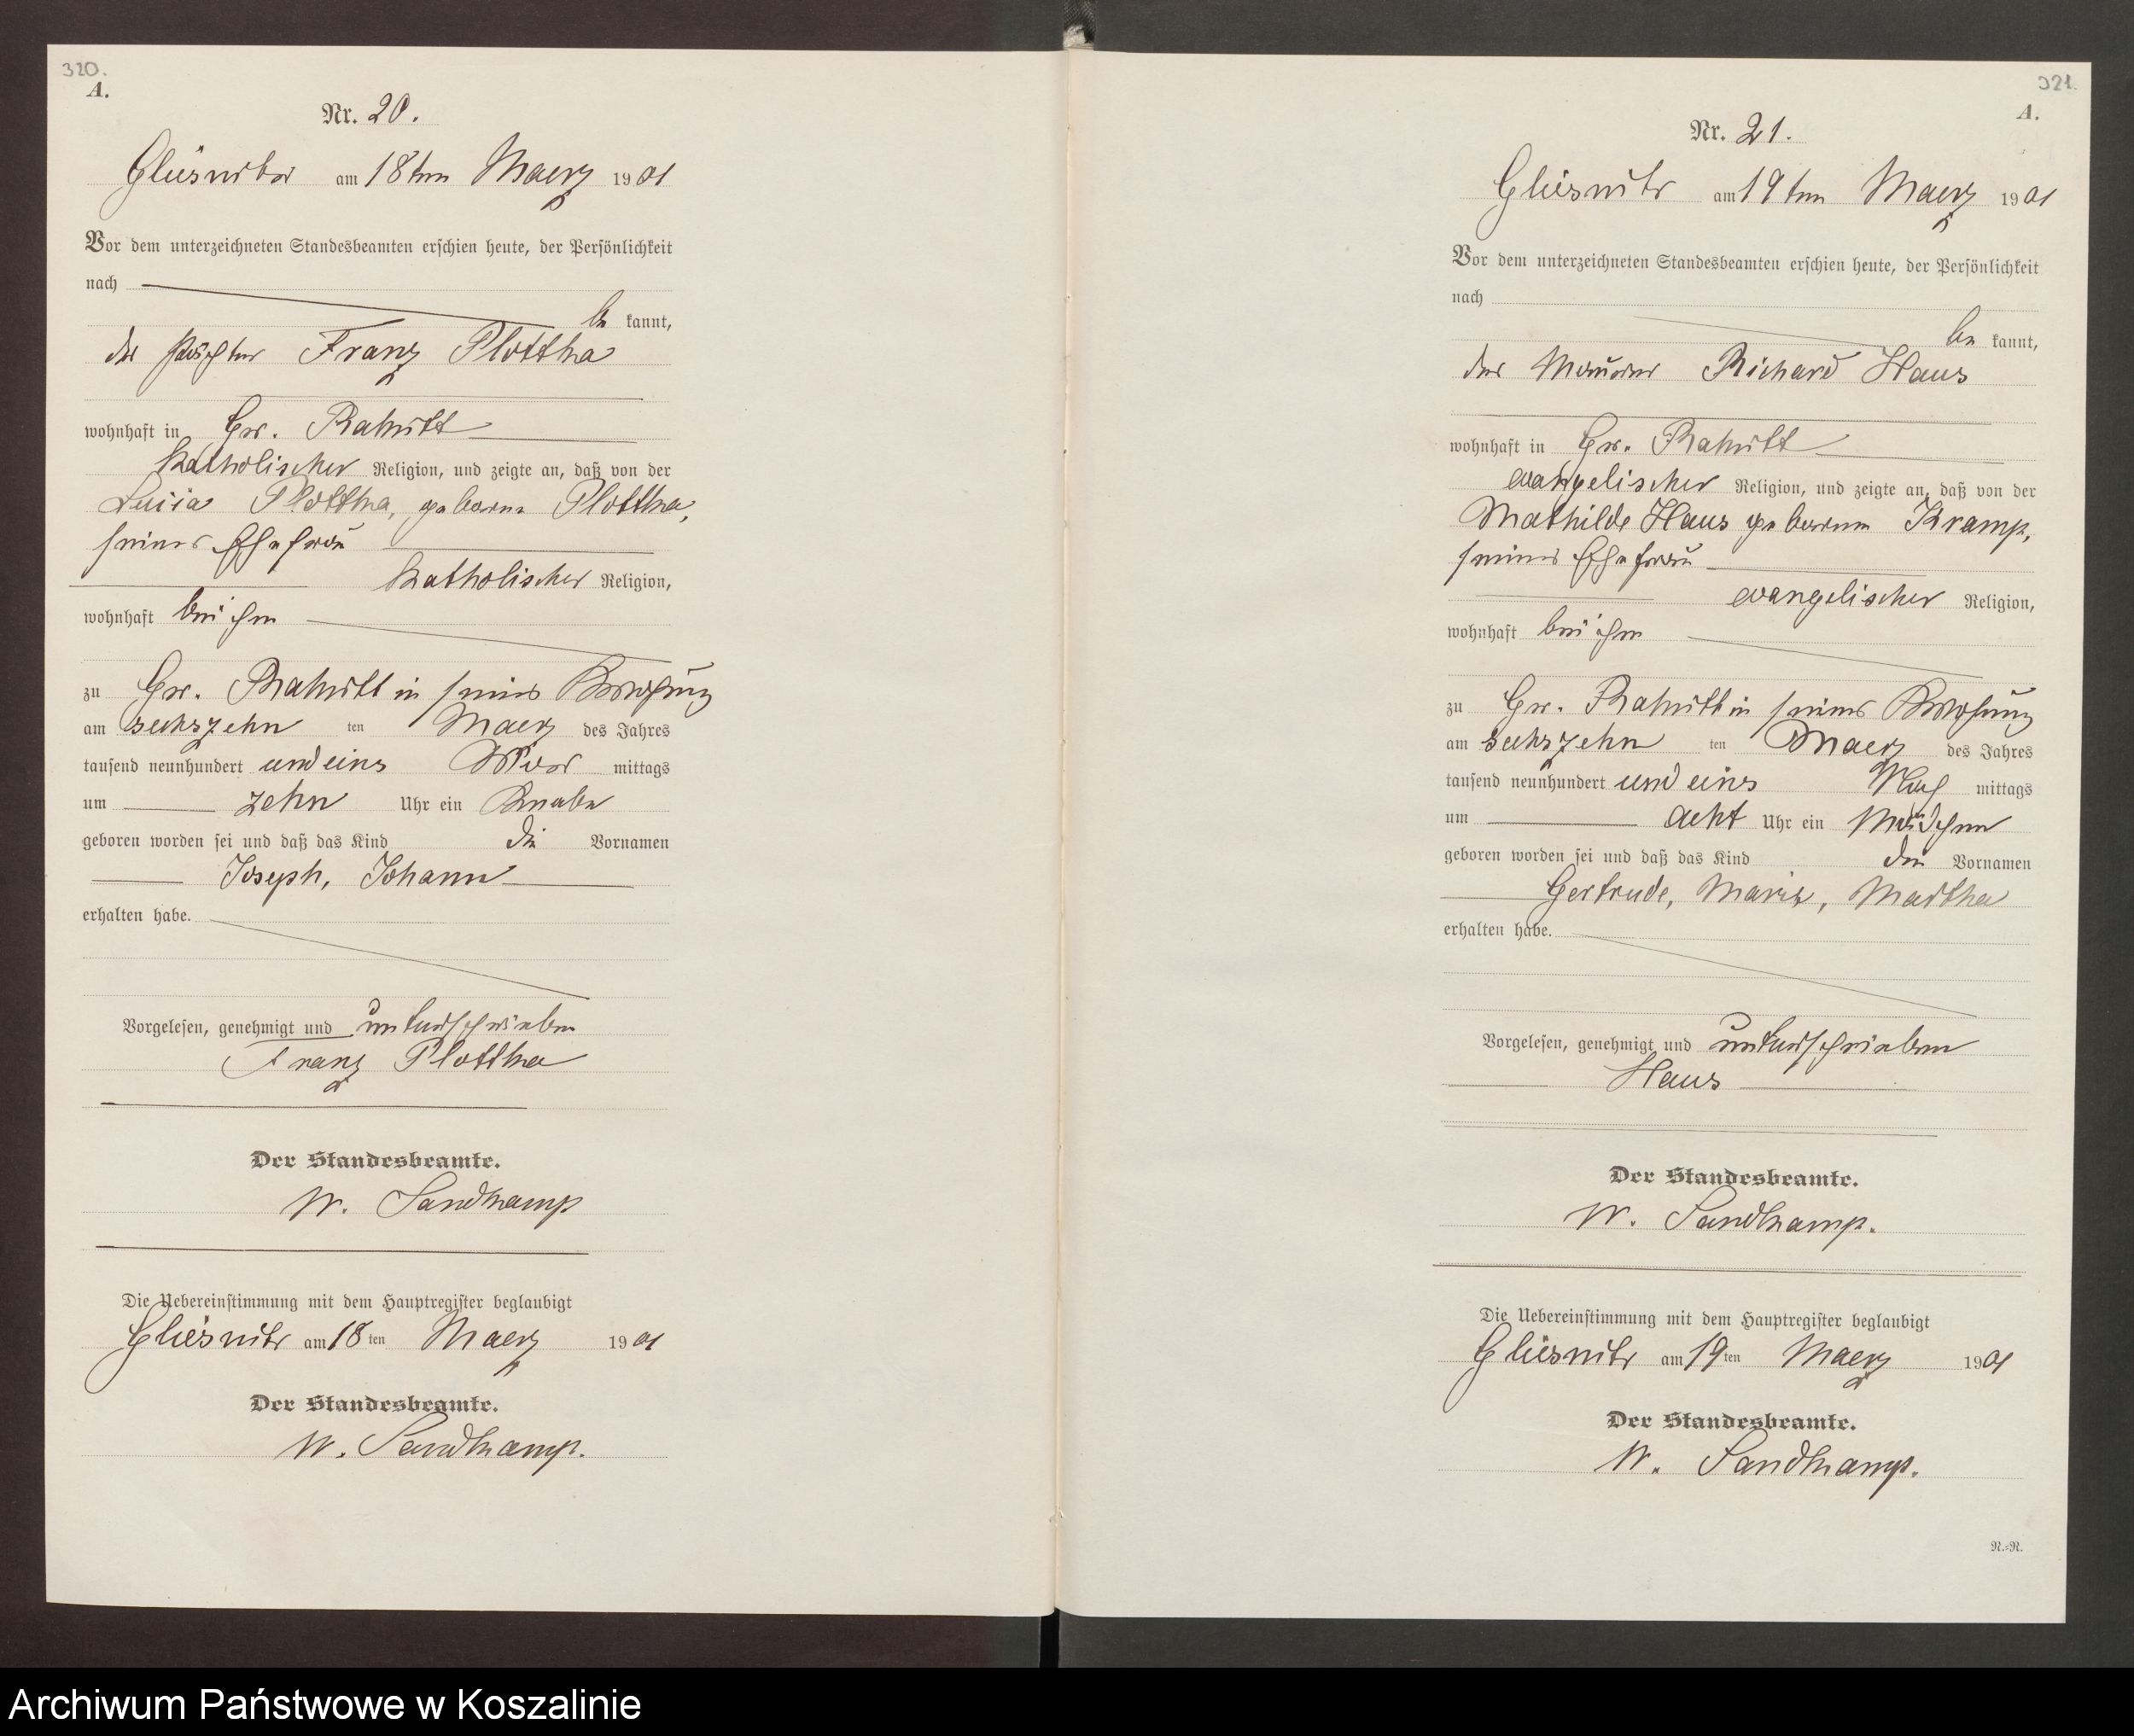 320.
A.
Nr. 20.
am 18ten Maerz 1901
Vor dem unterzeichneten Standesbeamten erschien heute, der Persönlichkeit
nach
be kannt,
der Pächter Franz Plottka
wohnhaft in Gr. Rakitt
katholischer Religion, und zeigte an, daß von der
Lucia Plottka, geborne Plottka,
seiner Ehefrau
katholischer Religion,
wohnhaft bei ihm
zu Gr. Rakitt in seiner Wohnung
am sechszehn ten Maerz des Jahres
tausend neunhundert und eins Vor mittags
um zehn Uhr ein Knabe
geboren worden sei und daß das Kind die Vornamen
Joseph, Johann
erhalten habe.
Vorgelesen, genehmigt und unterschrieben
Franz Plottka
Der Standesbeamte.
W. Sandkamp
Die Uebereinstimmung mit dem Hauptregister beglaubigt
Gliesnitz am 18ten Maerz 1901
Der Standesbeamte.
W. Sandkamp.
321.
A.
Nr. 21.
Gliesnitz am 19ten Maerz 1901
Vor dem unterzeichneten Standesbeamten erschien heute, der Persönlichkeit
nach
be kannt,
der Maurer Richard Haus
wohnhaft in Gr. Rakitt
evangelischer Religion, und zeigte an, daß von der
Mathilde Haus geborenen Kramp,
seiner Ehefrau
evangelischer Religion,
wohnhaft bei ihm
zu Gr. Rakitt in seiner Wohnung
am sechszehn ten Maerz des Jahres
tausend neunhundert und eins Nach mittags
um acht Uhr ein Mädchen
geboren worden sei und daß das Kind die Vornamen
Gertrude, Marie, Martha
erhalten habe.
Vorgelesen, genehmigt und unterschrieben
Haus
Der Standesbeamte.
W. Sandkamp.
Die Uebereinstimmung mit dem Hauptregister beglaubigt
Gliesnitz am 19ten Maerz 1901
Der Standesbeamte.
W. Sandkamp.
N.=N.
Archiwum Państwowe w Koszalinie